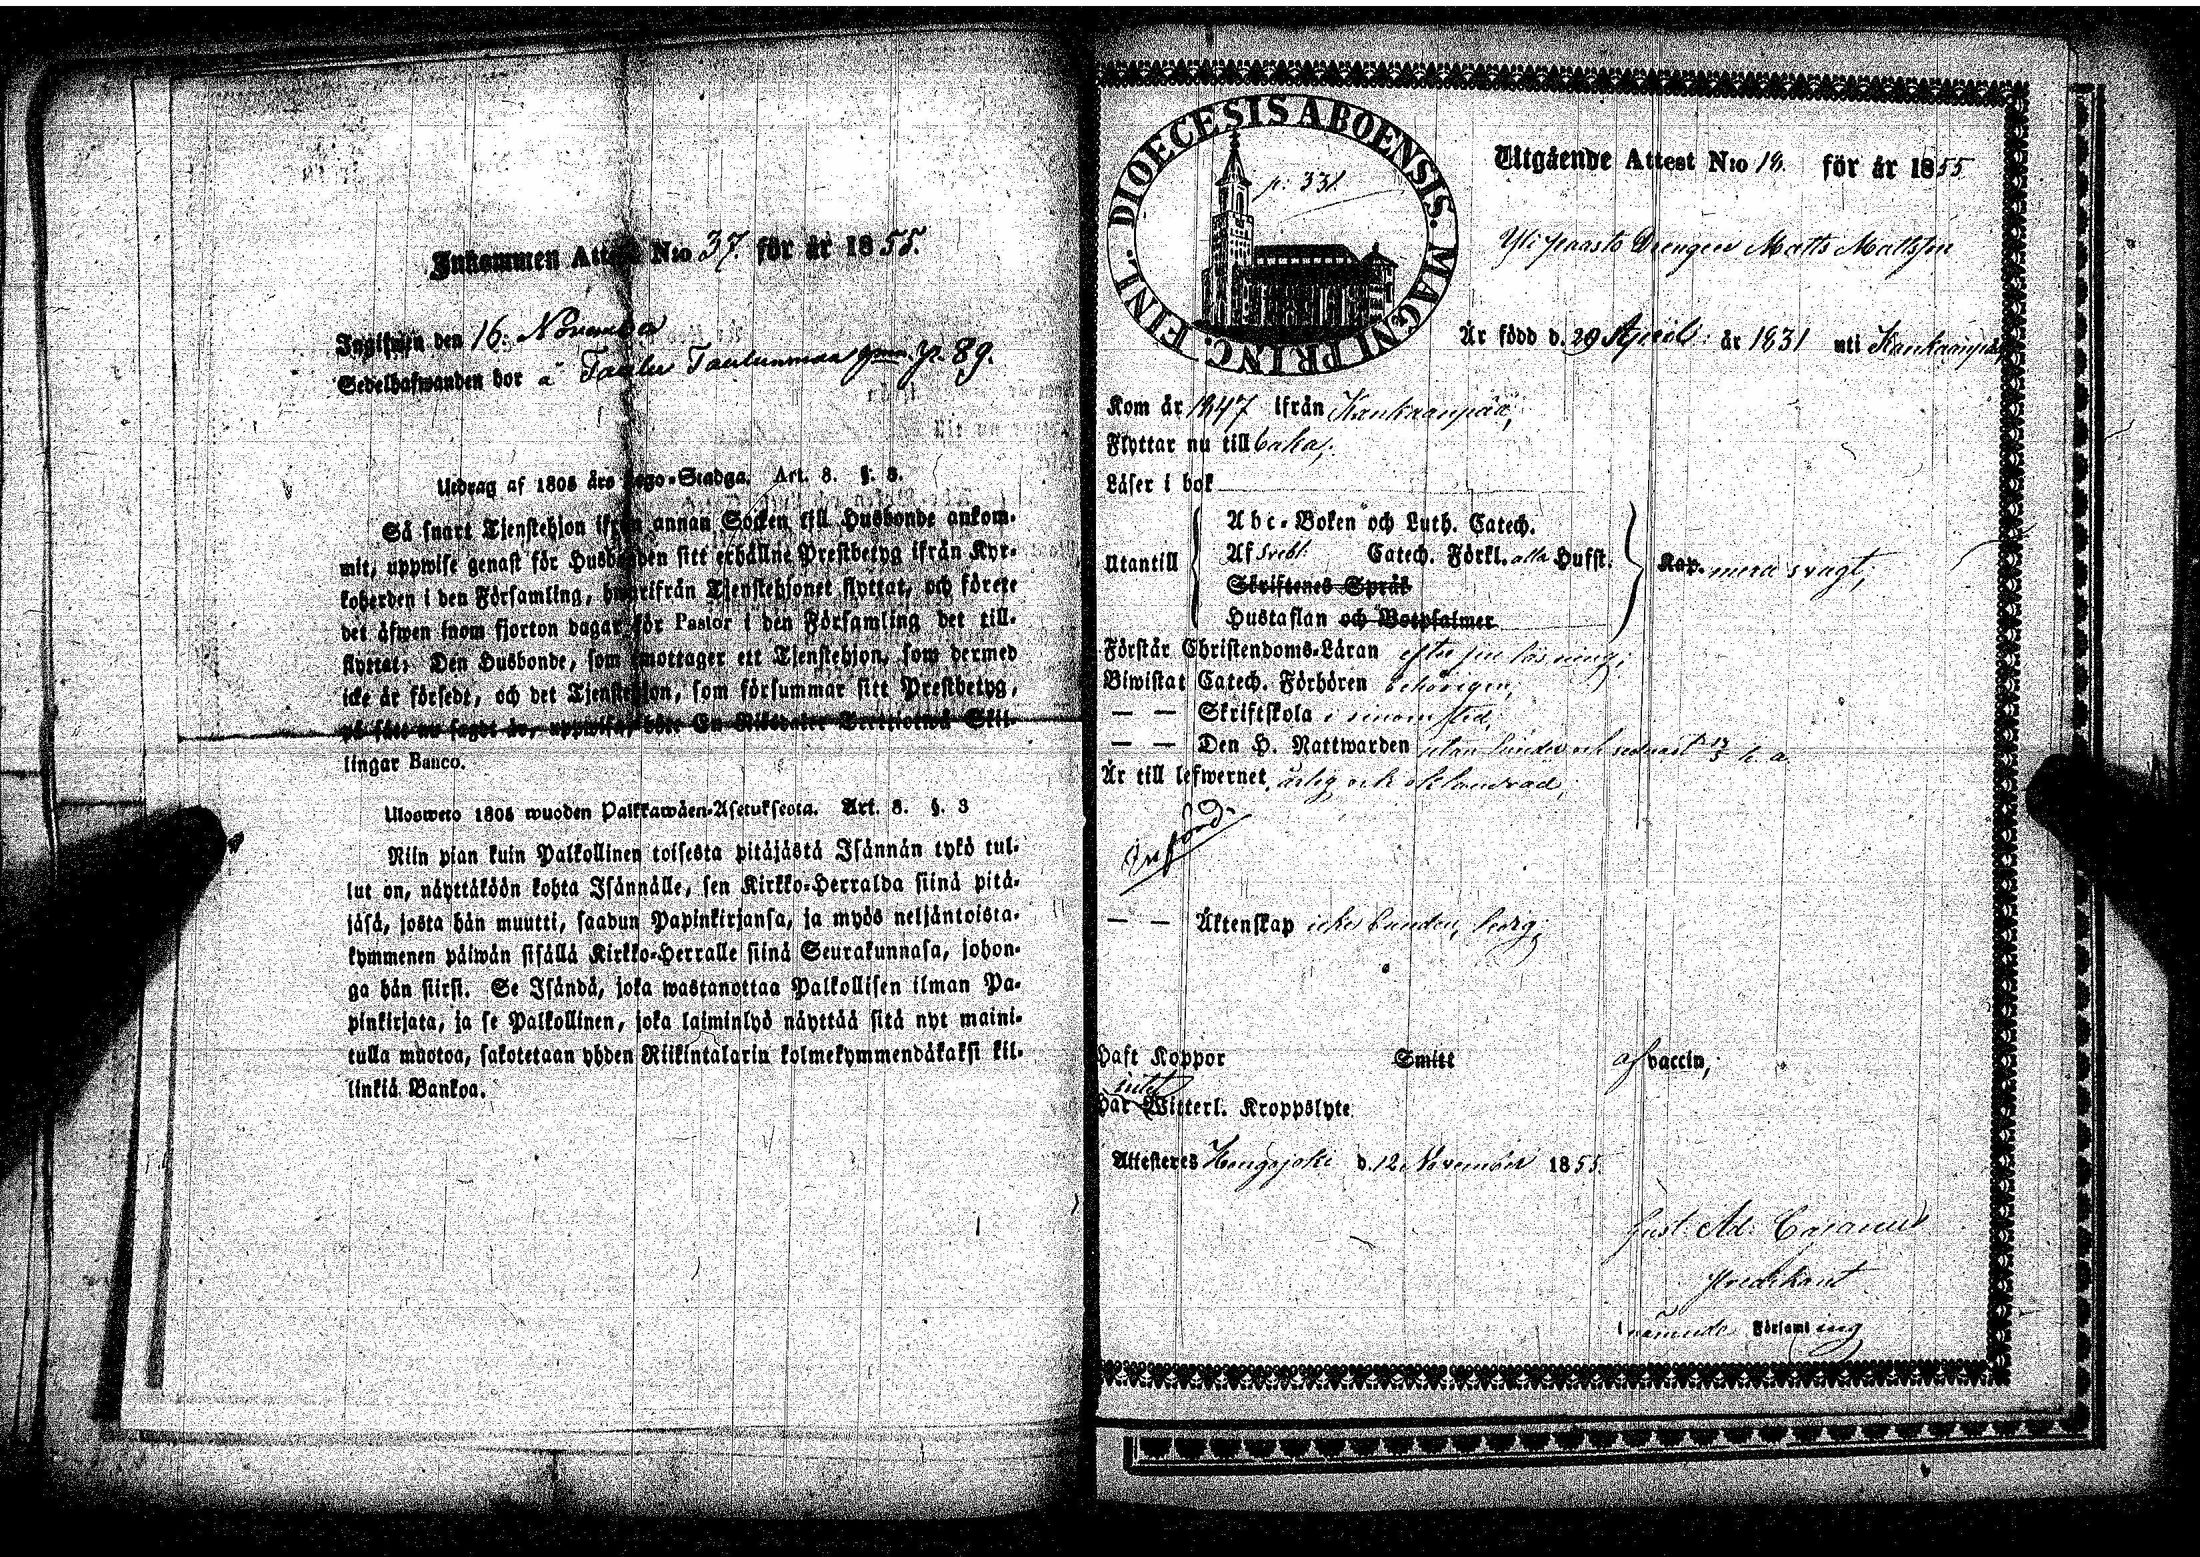 Inkommen Attest N:o 37. för år 1855.
Ingifwen den 16. November
Sedelhafwanden bor å Taulu Taulunmaa p. 89.
Utdrag af 1805 års Lego-Stadga. Art. 8. §. 3.
Så snart Tjenstehjon ifrån annan Socken till Husbonde ankom-
mit, uppwise genast för Husbonden sitt erhållne Prestbetyg ifrån Kyr-
koherden i den Församling, hwarifrån Tjenstehjonet flyttat, och förete
det äfwen inom fjorton dagar för Pastor i den Församling det till-
flyttat. Den Husbonde, som emottager ett Tjenstehjon, som dermed
icke är försedt, och det Tjenstehjon, som försummar sitt Prestbetyg,
på sätt nu sagdt är, uppwisa, böte En Riksdaler Trettiotwå Skil-
lingar Banco.
Ulosweto 1805 wuoden Palkkawäen-Asetuksesta. Art. 8. §. 3
Niin pian kuin Palkollinen toisesta pitäjästä Isännän tykö tul-
lut on, näyttäköön kohta Isännälle, sen Kirkko-Herralda siinä pitä-
jäsä, josta hän muutti, saadun Papinkirjansa, ja myös neljäntoista-
kymmenen päiwän sisällä Kirkko-Herralle siinä Seurakunnasa, johon-
ga hän siirsi. Se Isändä, joka wastanottaa Palkollisen ilman Pa-
pinkirjata, ja se Palkollinen, joka laiminlyö näyttää sitä nyt maini-
tulla muotoa, sakotetaan yhden Riikintalarin kolmekymmendäkaksi kil-
linkiä Bankoa.
DIOECESIS ABOENSIS. MAGNI PRINC. FINL.
p. 331
Utgående Attest N:o 18. för år 1855
Drengen Matts Mattsson
Är född d. 29 April år 1831 uti Kankaanpää
Kom år 1847 ifrån Kankaanpää,
Flyttar nu tillbaka,
Läser i bok
Utantill
Abc-Boken och Luth. Catech.
Af Svebl. Catech. Förkl. alla Hufst.
Skriftenes Språk
Hustaflan och Botpsalmer
Kap. mera svagt,
Förstår Christendoms-Läran efter sin läsning;
Biwistat Catech. Förhören behörigen,
— — Skriftskola i sinom tid,
— — Den H. Nattwarden utan hinder och senast h. a.
Är till lefwernet ärlig och oklandrad,
Införd
— — Äktenskap icke bunden, ledig,
Haft Koppor Smitt af vaccin,
Har intet Witterl. Kroppslyte
Attesteres Hongojoki d. 12 November 1855.
Gust. Ad. Cajanus
Predikant
i nämnde Församling